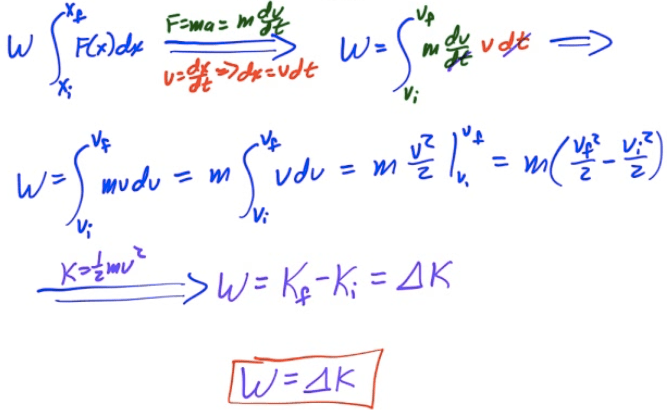 W ∫_{x_i}^{x_f} F(x)dx  F=ma=m dv/dt ⟹ v=dx/dt ⇒ dx=vdt  W=∫_{v_i}^{v_f} m dv/dt v dt ⟹
W=∫_{v_i}^{v_f} mvdv = m ∫_{v_i}^{v_f} vdv = m v²/2 |_{v_i}^{v_f} = m(v_f²/2 - v_i²/2)
K=½mv² ⟹ W=K_f-K_i=ΔK
W=ΔK